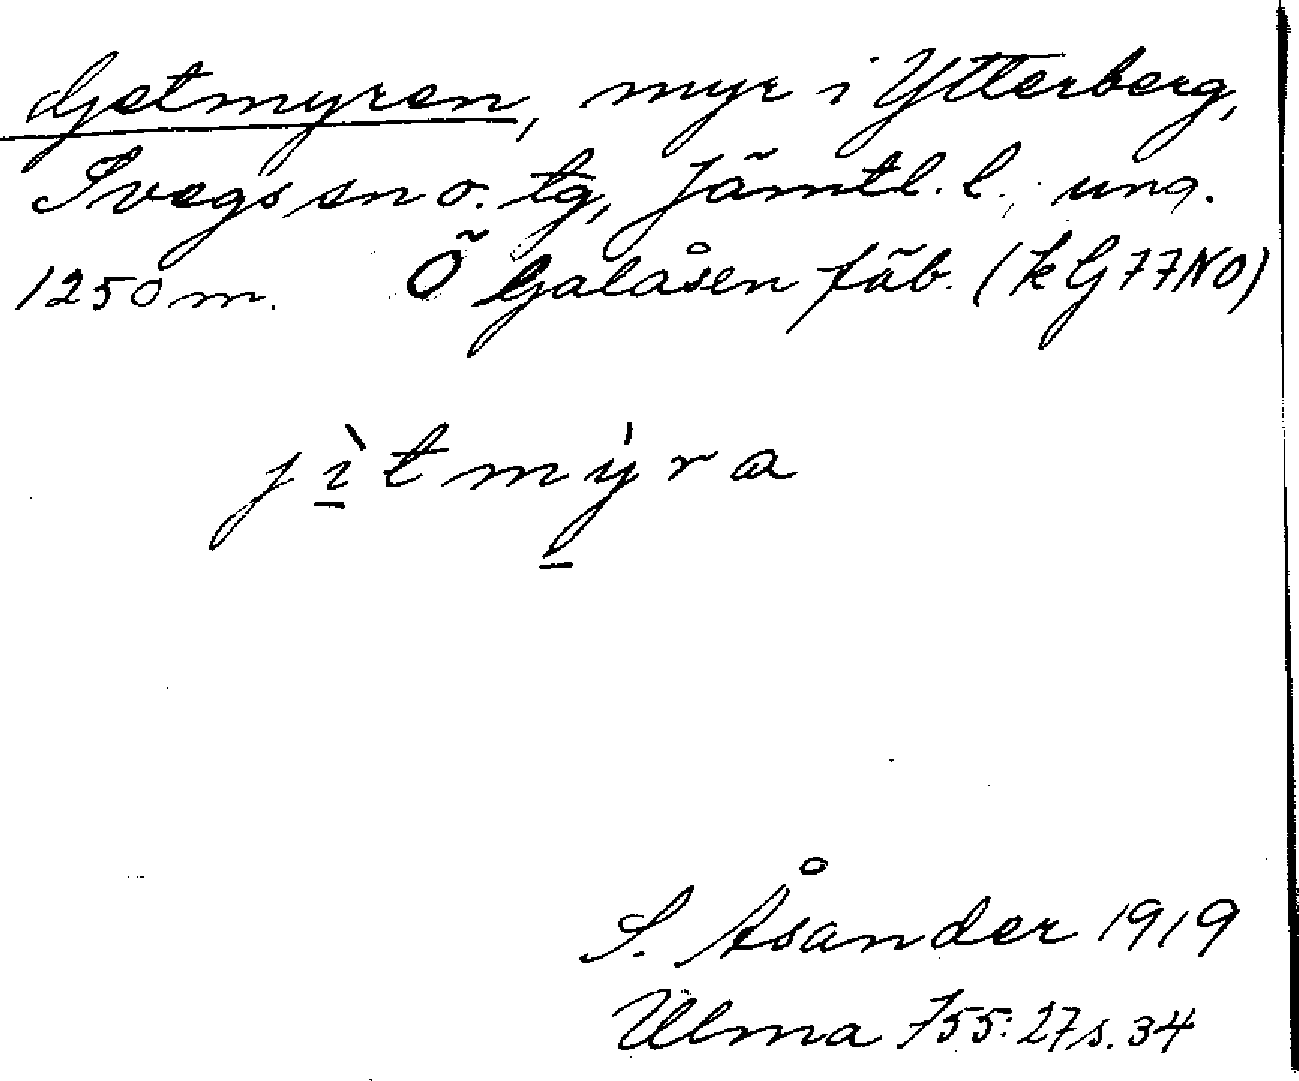 Getmyren, myr i Ytterberg,
Svegs sn o. tg, Jämtl. l., ung.
1250 m. Ö Galåsen fäb. (k G77NO)
jìtmýra
S. Åsander 1919
Ulma 755:27 s. 34